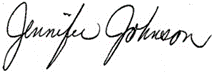 Jennifer Johnson